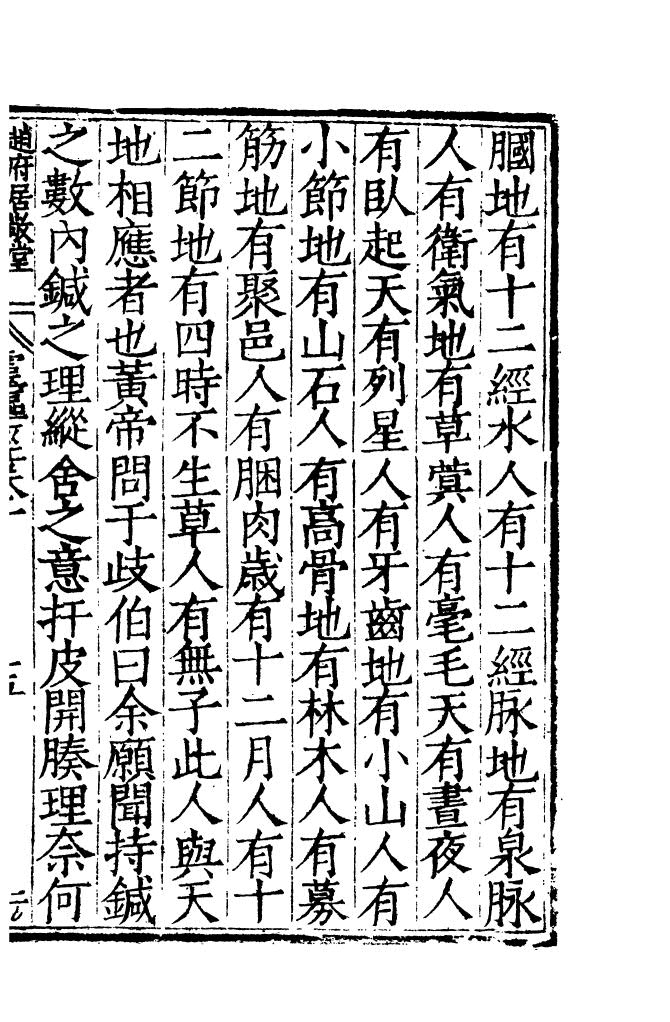 膕地有十二經水人有十二經脉地有泉脉
人有衛氣地有草蓂人有毫毛天有晝夜人
有臥起天有列星人有牙齒地有小山人有
小節地有山石人有高骨地有林木人有募
筋地有聚邑人有䐃肉歲有十二月人有十
二節地有四時不生草人有無子此人與天
地相應者也黃帝問于歧伯曰余願聞持鍼
之數內鍼之理縱舍之意扞皮開腠理奈何
趙府居敬堂